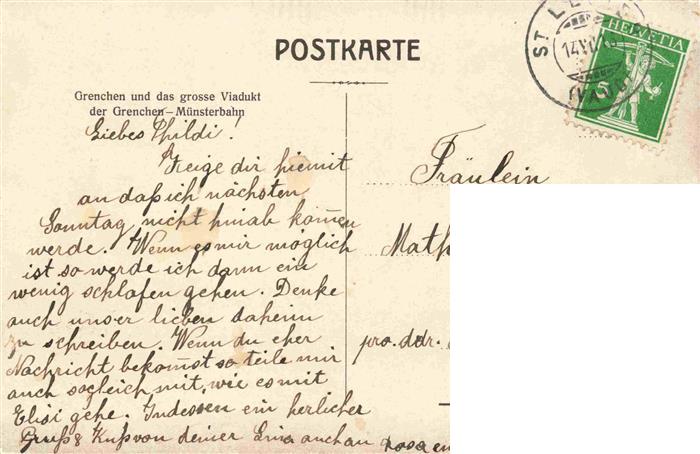 POSTKARTE
Grenchen und das grosse Viadukt
der Grenchen-Münsterbahn
Liebes Thildi!
Zeige dir hiemit
an daß ich nächsten
Sonntag nicht hinab kommen
werde. Wenn es mir möglich
ist so werde ich dann ein
wenig schlafen gehen. Denke
auch unser lieben daheim
zu schreiben. Wenn du eher
Nachricht bekomst so teile mir
auch sogleich mit, wie es mit
Elisi gehe. Indessen ein herlicher
Gruß & Kuß von deiner auch an Rosa
HELVETIA
5
ST
(VAUD)
Fräulein
Math
pro. ddr.